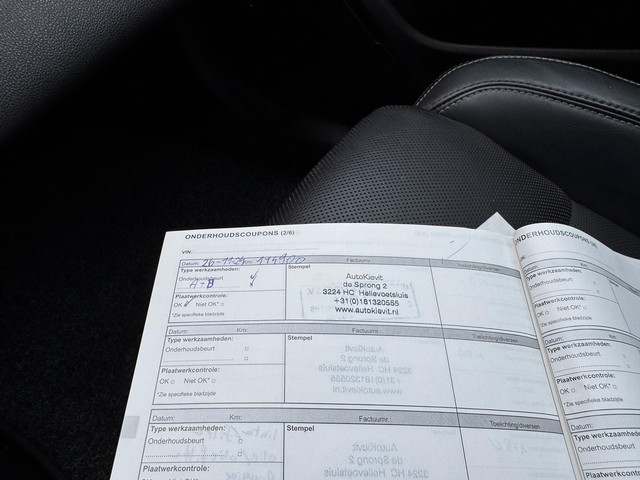 ONDERHOUDSCOUPONS (2/6)
VIN:
Datum: Km: Factuurnr. Toelichting/diversen
Type werkzaamheden: Stempel
Onderhoudsbeurt
A+B
Plaatwerkcontrole:
OK Niet OK*
*Zie specifieke bladzijde
AutoKievit
de Sprong 2
3224 HC Hellevoetsluis
+31(0)181320555
www.autokievit.nl
Datum: Km: Factuurnr. Toelichting/diversen
Type werkzaamheden: Stempel
Onderhoudsbeurt
Plaatwerkcontrole:
OK Niet OK*
*Zie specifieke bladzijde
Datum: Km: Factuurnr. Toelichting/diversen
Type werkzaamheden: Stempel
Onderhoudsbeurt
Plaatwerkcontrole:
ONDERHOUDSCOUPONS
VIN:
Datum:
Type werkzaamheden:
Onderhoudsbeurt
Plaatwerkcontrole:
OK Niet OK*
*Zie specifieke bladzijde
Datum:
Type werkzaamheden:
Onderhoudsbeurt
Plaatwerkcontrole:
OK Niet OK*
*Zie specifieke bladzijde
Datum:
Type werkzaamheden:
Onderhoudsbeurt